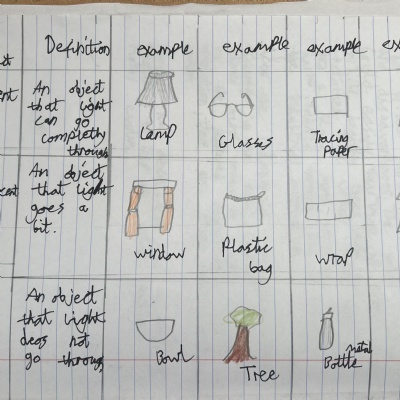 Definition example example example ex
An object
that light
can go
completly
through
Lamp
Glasses
Tracing
Paper
An object
that light
goes a
bit.
window
Plastic
bag
wrap
An object
that light
does not
go through
Bowl
Tree
metal
Bottle